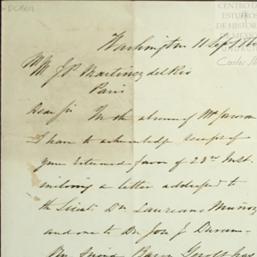 CENTRO DE
ESTUDIOS
DE HISTORIA
Washington 11 Sept.
J P Martinez del Rio
Paris
Dear Sir In the absence of Mr
I have to acknowledge receipt of
your esteemed favor of 23rd Inst.
inclosing a letter addressed to
the Licdo. Dn Laureano Muñoz
and one to Dr. Jose J
My friend Baron Gerolt has